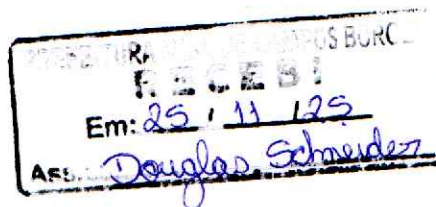 PREFEITURA MUN. DE CAMPOS BORGE
RECEBI
Em: 25 / 11 / 25
Ass.: Douglas Schneider